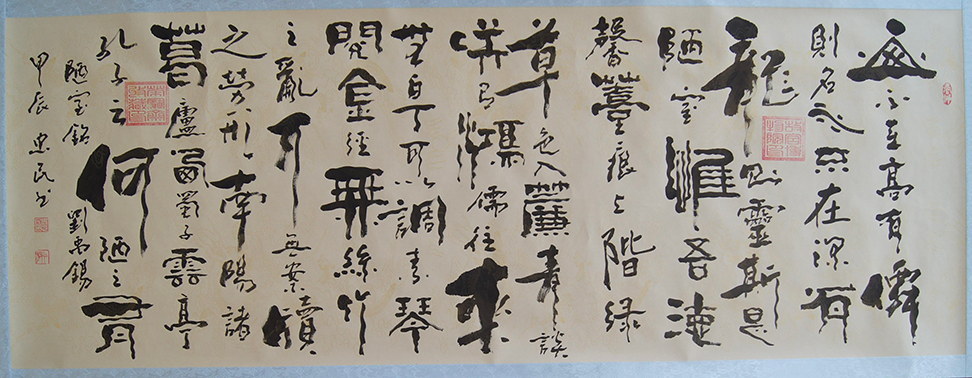 山不在高有僊
則名水不在深有
龍則靈斯是
陋室惟吾德
馨薹痕上階綠
草色入簾青談
笑有鴻儒往來
無白丁可以調素琴
閱金經無絲竹
之亂耳無案牘
之勞形南陽諸
葛廬西蜀子雲亭
孔子云何陋之有
陋室銘 劉禹錫
甲辰 忠民书